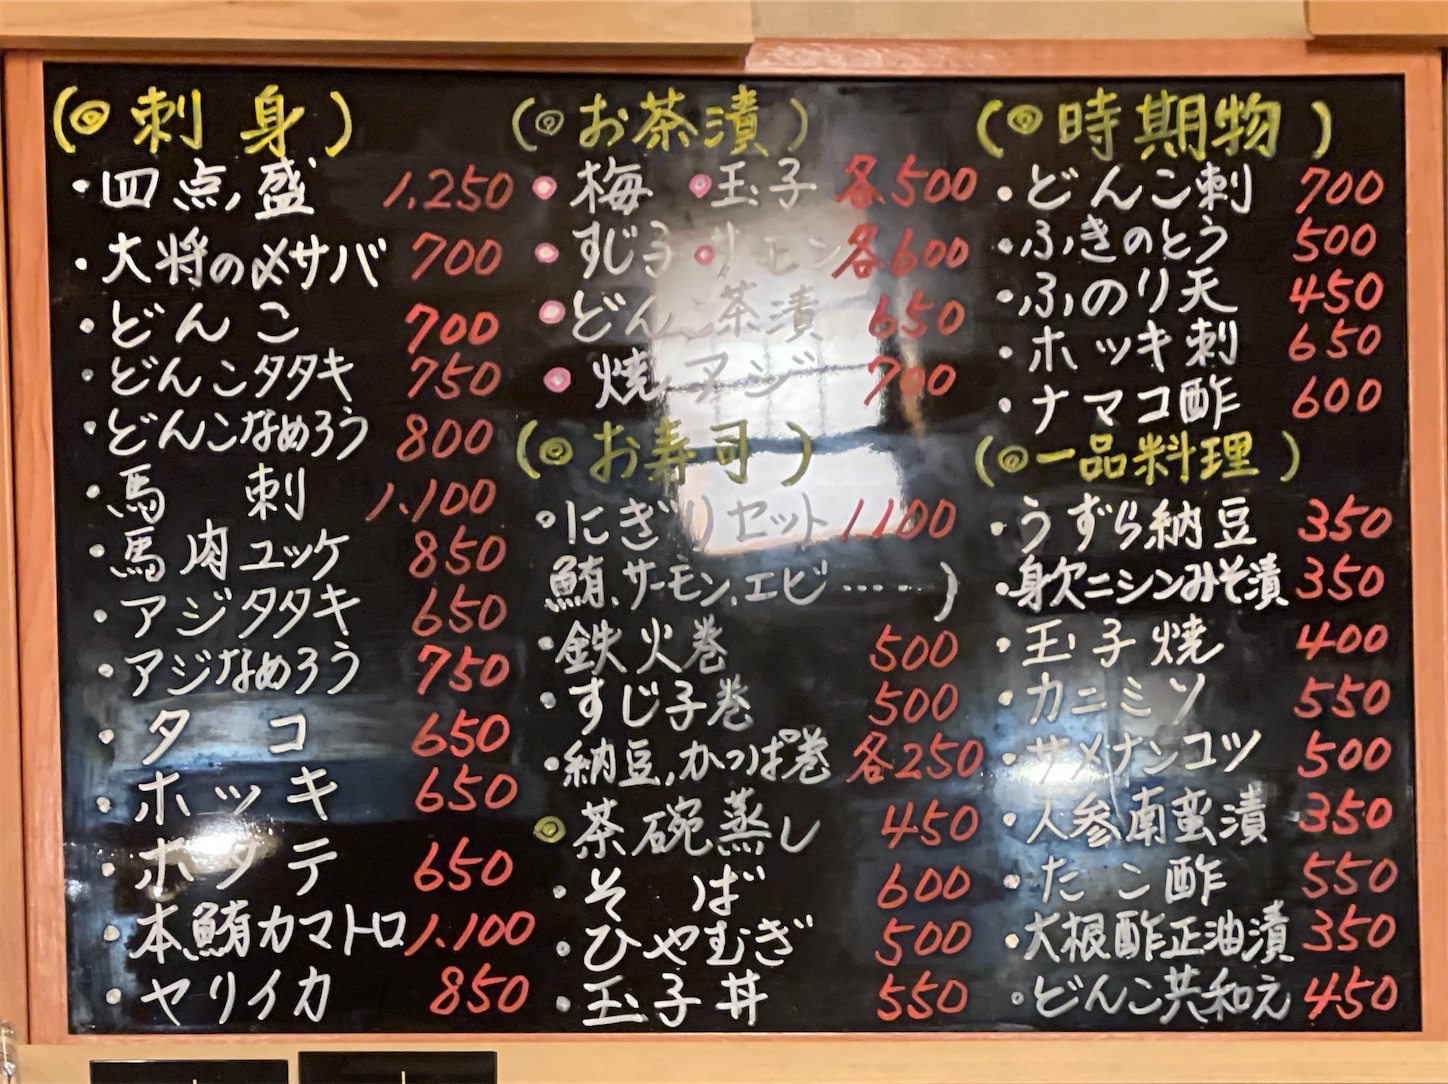 (◎刺身)
・四点盛 1,250
・大将の〆サバ 700
・どんこ 700
・どんこタタキ 750
・どんこなめろう 800
・馬刺 1,100
・馬肉ユッケ 850
・アジタタキ 650
・アジなめろう 750
・タコ 650
・ホッキ 650
・ホタテ 650
・本鮪カマトロ 1,100
・ヤリイカ 850
(◎お茶漬)
・梅 ・玉子 各500
・すじ子 ・サーモン 各600
・どんこ茶漬 650
・焼アジ 700
(◎お寿司)
・にぎりセット 1,100
鮪、サーモン、エビ……)
・鉄火巻 500
・すじ子巻 500
・納豆,かっぱ巻 各250
◎茶碗蒸し 450
・そば 600
・ひやむぎ 500
・玉子丼 550
(◎時期物)
・どんこ刺 700
・ふきのとう 500
・ふのり天 450
・ホッキ刺 650
・ナマコ酢 600
(◎一品料理)
・うずら納豆 350
・身欠ニシンみそ漬 350
・玉子焼 400
・カニミソ 550
・サメナンコツ 500
・人参南蛮漬 350
・たこ酢 550
・大根酢正油漬 350
・どんこ共和え 450